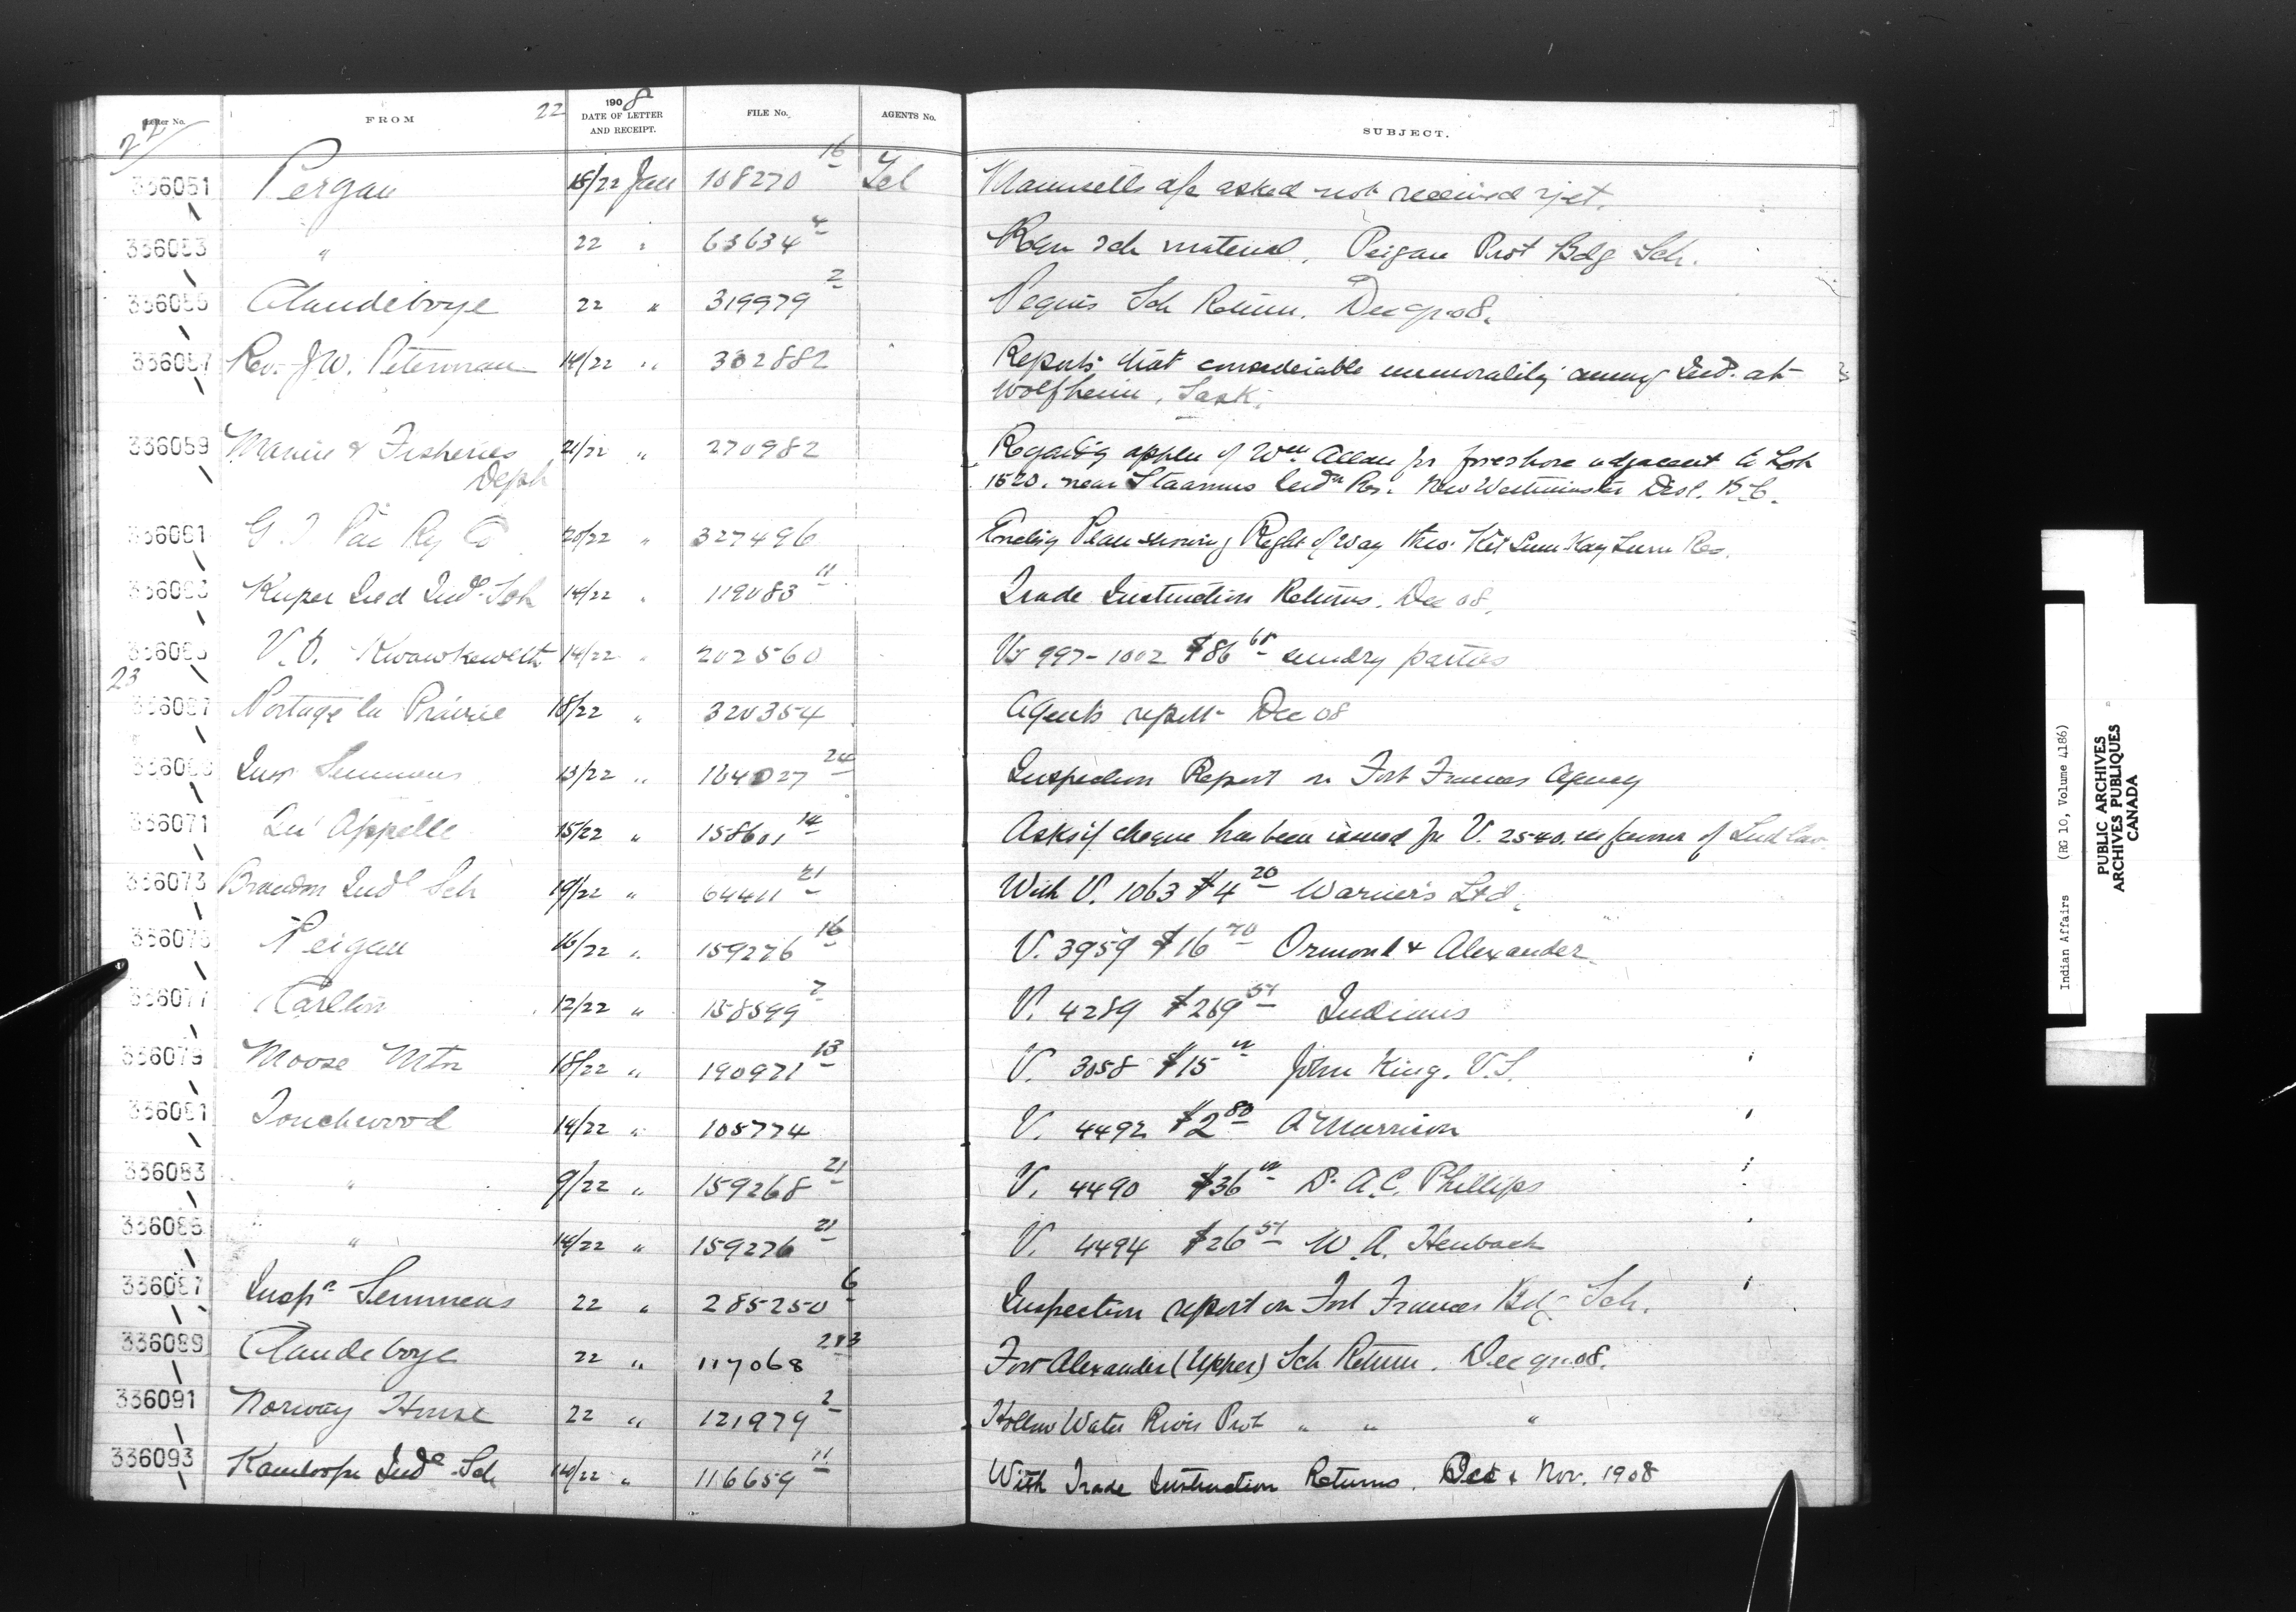 Letter No. FROM 22 1908 DATE OF LETTER AND RECEIPT. FILE No. AGENTS No. SUBJECT.
22
336051 Peigan 18/22 Jan 108270 16 Tel asked not received yet.
336053 " 22 " 63634 4 Reqn Sch material. Peigan Prot Bdg Sch.
336055 Clandeboye 22 " 319979 2 Peguis Sch Return. Dec qr. 08.
336057 Rev. J.W. Peterman 14/22 " 302882 Reports that considerable immorality among Ind. at
Wolfheim, Sask.
336059 Marine & Fisheries 21/22 " 270982 Regarding appln of Wm Allan for foreshore adjacent to Lot
Dept 1520. near Staamus Indn Res. New Westminster Dist. B.C.
336061 G. T. Pac Ry Co 20/22 " 327496 Encling Plan showing Right of Way thro. Kit Sum Kay Lum Res.
336063 Kuper Isld Indl Sch 14/22 " 119083 11 Trade Instruction Returns. Dec 08.
336065 Kwawkewlth 14/22 " 202560 Vs 997-1002 $86 sundry parties
23
336067 Portage la Prairie 18/22 " 320354 Agents report Dec 08
336069 Insp Semmens 13/22 " 164027 24 Inspection Report on Fort Frances Agency
336071 Qu'Appelle 15/22 " 158601 14 Asks if cheque has been issued for V. 2540. in favour of
336073 Brandon Indl Sch 19/22 " 64411 21 With V. 1063 $4 20 Warner's Ltd.
336075 Peigan 16/22 " 159276 16 V. 3959 $16 70 Ormond & Alexander
336077 Carlton 12/22 " 158599 7 V. 4289 $269 51 Indians
336079 Moose Mtn 18/22 " 190971 13 V. 3058 $15 John King. V.S.
336081 Touchwood 14/22 " 105774 V. 4492 $2 80 A Murrison
336083 " 9/22 " 159268 21 V. 4490 $36 Dr A.C. Phillips
336085 " 14/22 " 159276 21 V. 4494 $26 51 W. A. Heubach
336087 Inspr Semmens 22 " 285250 6 Inspection report on Fort Frances Bdg Sch.
336089 Clandeboye 22 " 117068 Fort Alexander (Upper) Sch Return. Dec qr. 08.
336091 Norway House 22 " 121979 2 Hollow Water River Prot " " "
336093 Kamloops Indl Sch 14/22 " 116659 11 With Trade Instruction Returns. Oct & Nov. 1908
Indian Affairs (RG 10, Volume 4186)
PUBLIC ARCHIVES
ARCHIVES PUBLIQUES
CANADA